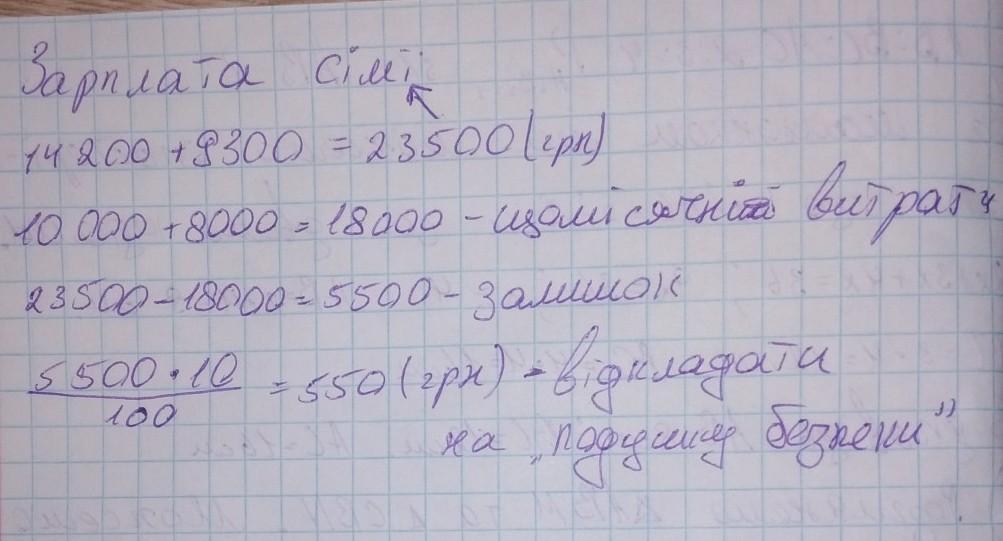 Зарплата сімї
14 200 + 9300 = 23500 (грн)
10 000 + 8000 = 18000 - щомісячні витрати
23500 - 18000 = 5500 - залишок
5 500 · 10 / 100 = 550 (грн) - відкладати
на „подушку безпеки”